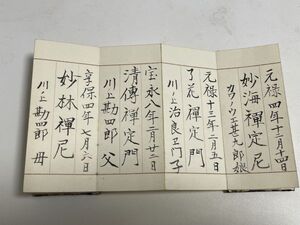 元禄四年十二月十四日
妙海禅定尼
カワノウエ甚九郎娘
元禄十三年二月五日
了花禅定門
川ノ上治良ヱ門子
宝永八年二月廿二日
清傳禅定門
川上勘四郎 父
享保四年七月六日
妙林禅尼
川上勘四郎 母